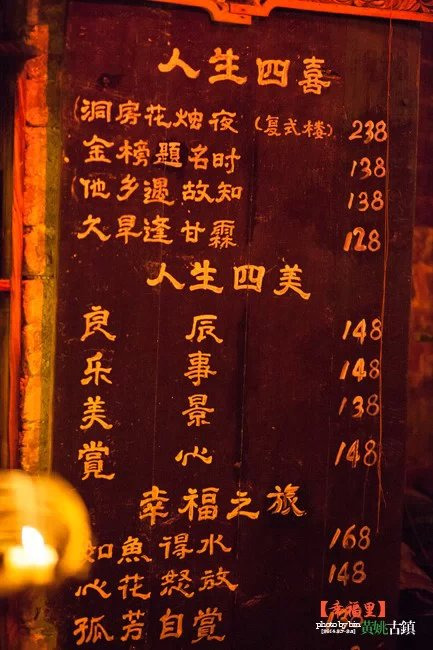 人生四喜
洞房花烛夜 (复式楼) 238
金榜題名时 138
他乡遇故知 138
久旱逢甘霖 128
人生四美
良辰 148
乐事 148
美景 138
賞心 148
幸福之旅
如魚得水 168
心花怒放 148
孤芳自賞
【幸福里】
photo by bin 黄姚古鎮